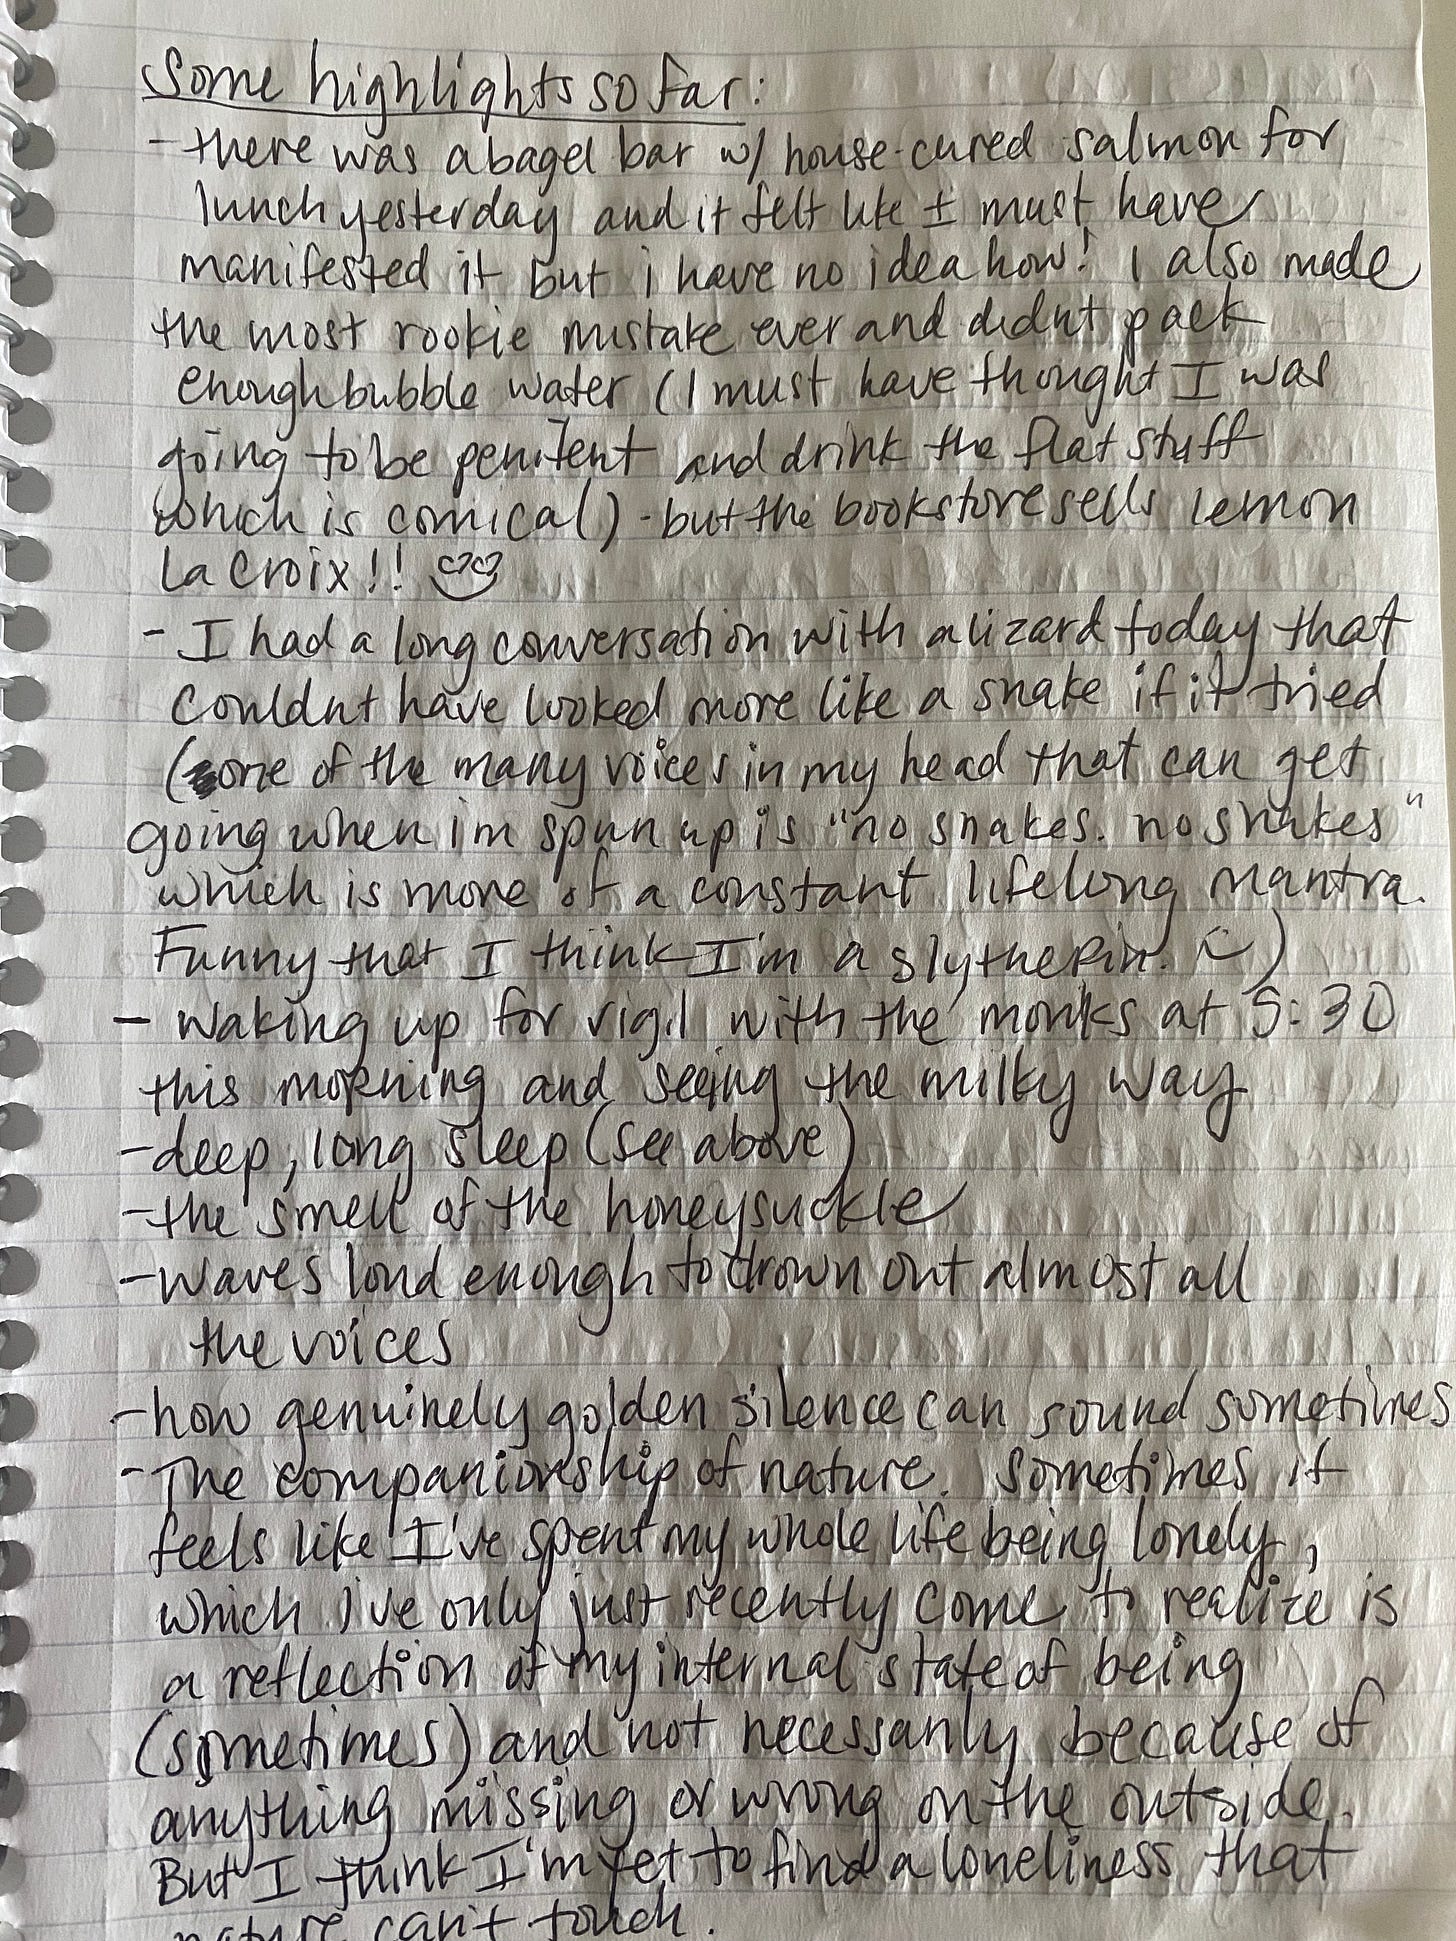 Some highlights so far:
- there was a bagel bar w/ house-cured salmon for
lunch yesterday and it felt like I must have
manifested it but i have no idea how! I also made
the most rookie mistake ever and didnt pack
enough bubble water (I must have thought I was
going to be penitent and drink the flat stuff
which is comical) - but the bookstore sells lemon
La Croix!!
- I had a long conversation with a lizard today that
couldnt have looked more like a snake if it tried
(one of the many voices in my head that can get
going when im spun up is "no snakes. no snakes"
which is more of a constant lifelong mantra.
Funny that I think I'm a slytherin. :)
- waking up for vigil with the monks at 5:30
this morning and seeing the milky way
- deep, long sleep (see above)
- the smell of the honeysuckle
- waves loud enough to drown out almost all
the voices
- how genuinely golden silence can sound sometimes
- The companionship of nature. Sometimes it
feels like I've spent my whole life being lonely,
which i've only just recently come to realize is
a reflection of my internal state of being
(sometimes) and not necessarily because of
anything missing or wrong on the outside.
But I think I'm yet to find a loneliness that
nature can't touch.